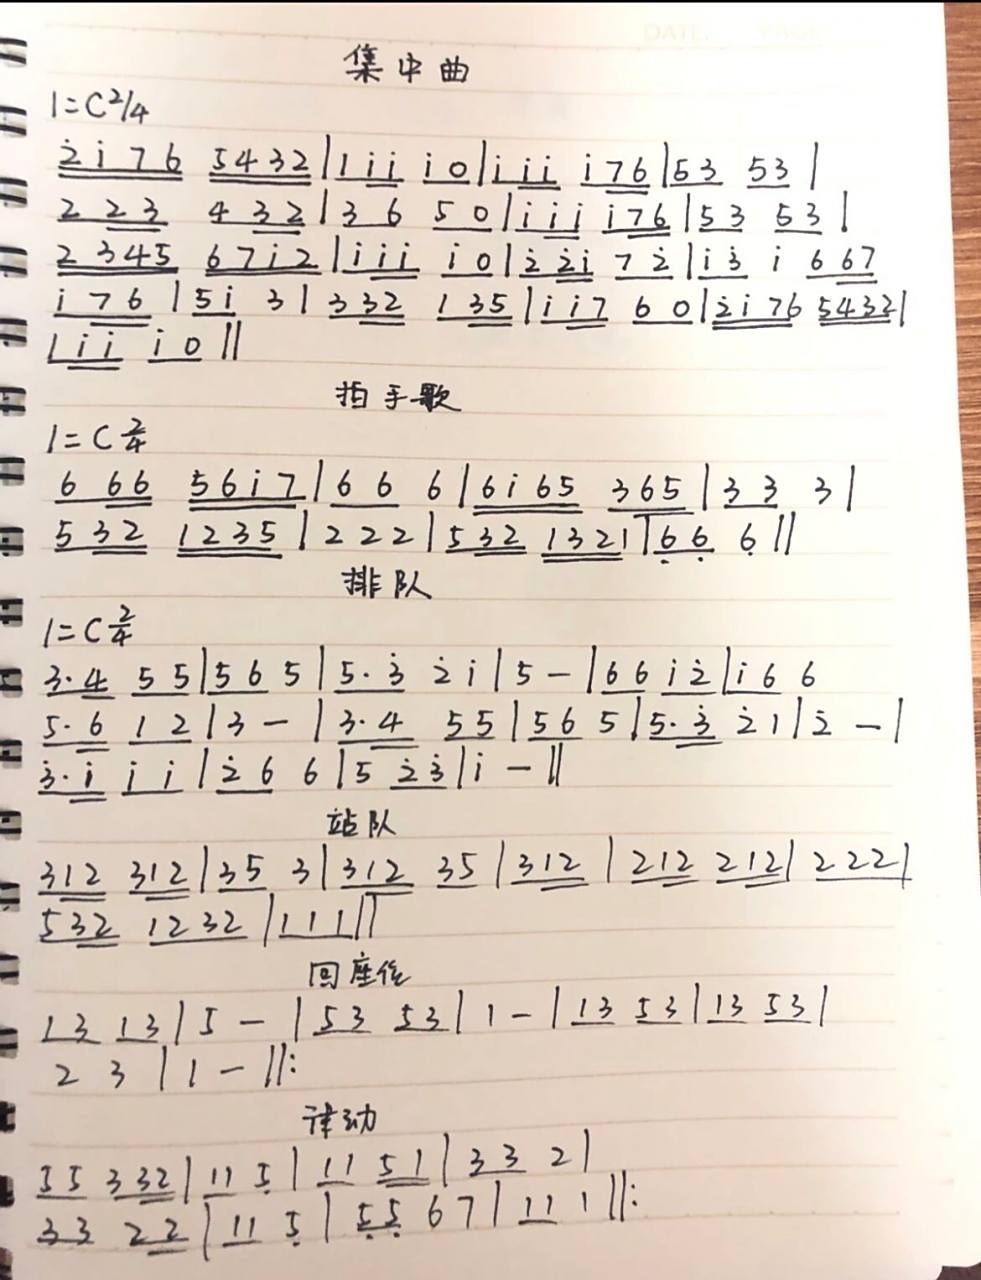 集中曲
1=C2/4
2̇i̇76 5432|1i̇i̇ i̇0|i̇i̇i̇ i̇76|53 53|
223 432|36 50|i̇i̇i̇ i̇76|53 53|
2345 67i̇2|i̇i̇i̇ i̇0|2̇2̇i̇ 72̇|i̇3̇ i̇ 667
i̇76|5i̇ 3|332 135|i̇i̇7 60|2̇i̇76 5432|
1i̇i̇ i̇0||
拍手歌
1=C 2/4
666 56i̇7|66 6|6i̇65 365|33 3|
532 1235|222|532 1321|6̣6̣ 6̣||
排队
1=C 2/4
3·4 55|565|5·3̇ 2̇i̇|5-|66i̇2̇|i̇66
5·6 12|3-|3·4 55|565|5·3̇ 2̇1|2̇-|
3̇·i̇ i̇i̇|2̇6 6|5 2̇3̇|i̇-||
站队
312 312|35 3|312 35|312|212 212|222|
532 1232|111||
回座位
13 13|5-|53 53|1-|13 53|13 53|
2 3|1-||:
律动
55 332|11 5̣|11 51|33 2|
33 22|11 5̣|5̣5̣ 67|11 1||: